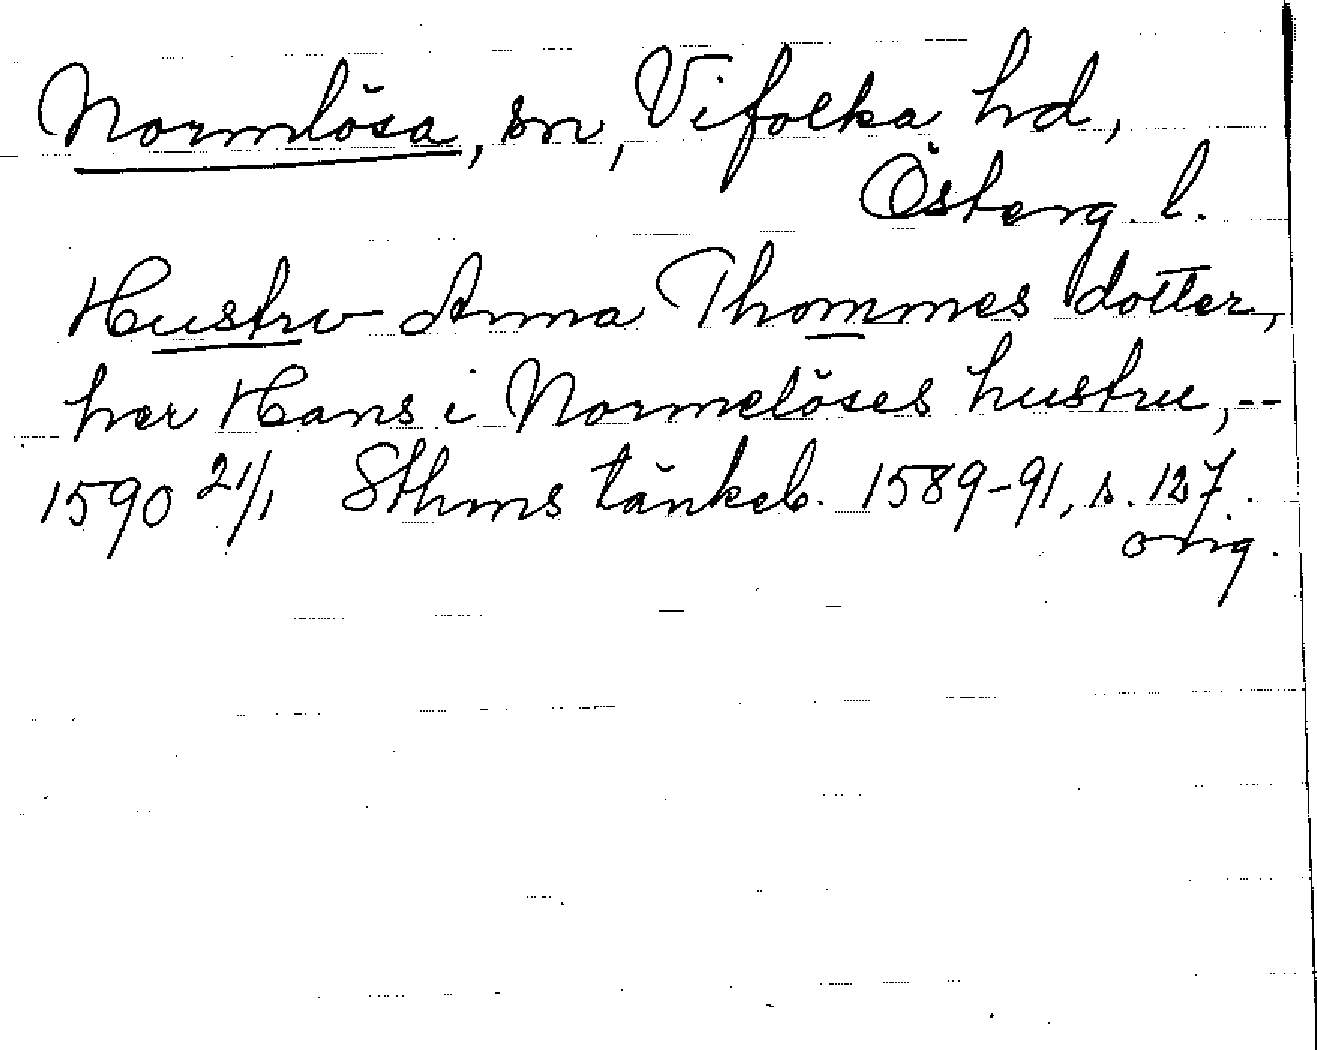 Normlösa, sn, Vifolka hd,
Österg. l.
Hustrv Anna Thommes dotter,
her Hans i Normelöses hustru, --
1590 21/1 Sthms tänkeb. 1589-91, s. 127.
orig.